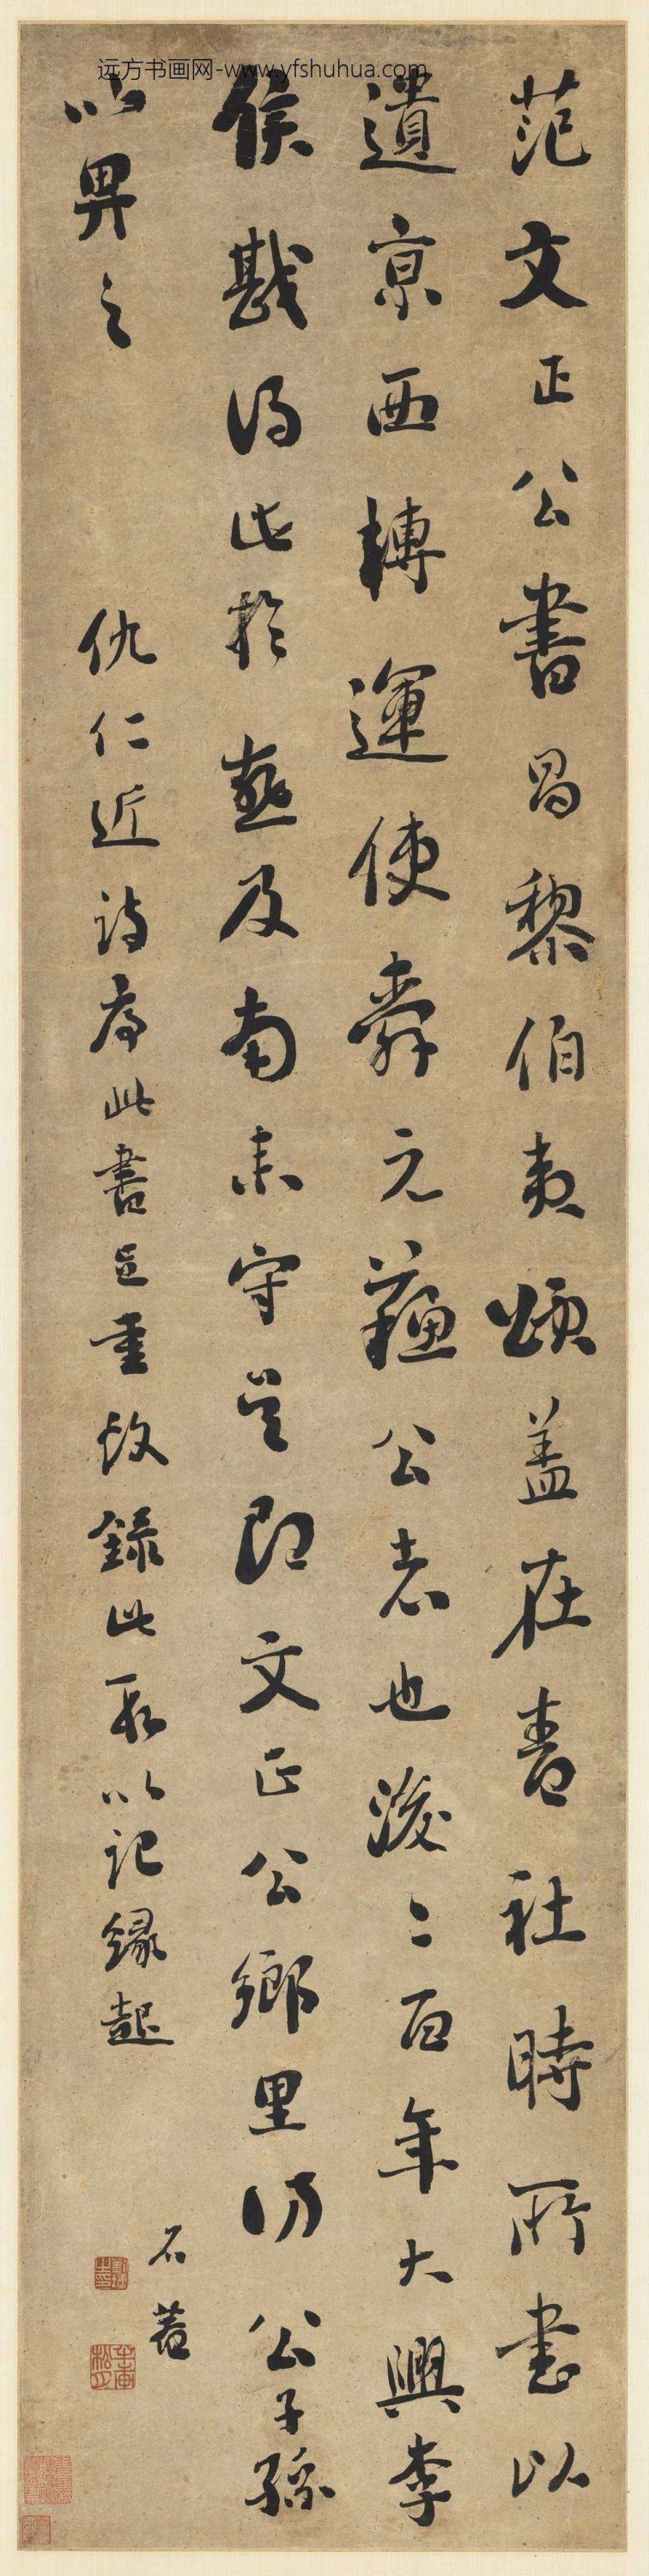 远方书画网-www.yfshuhua.com
范文正公書昌黎伯夷頌盖在青社時所書以
遺京西轉運使舜元蘇公者也後二百年大興李
侯戡得此於燕及南來守吳即文正公鄉里訪公子孫
以畀之
仇仁近詩序此書重故錄此段以記緣起
石菴
劉墉之印